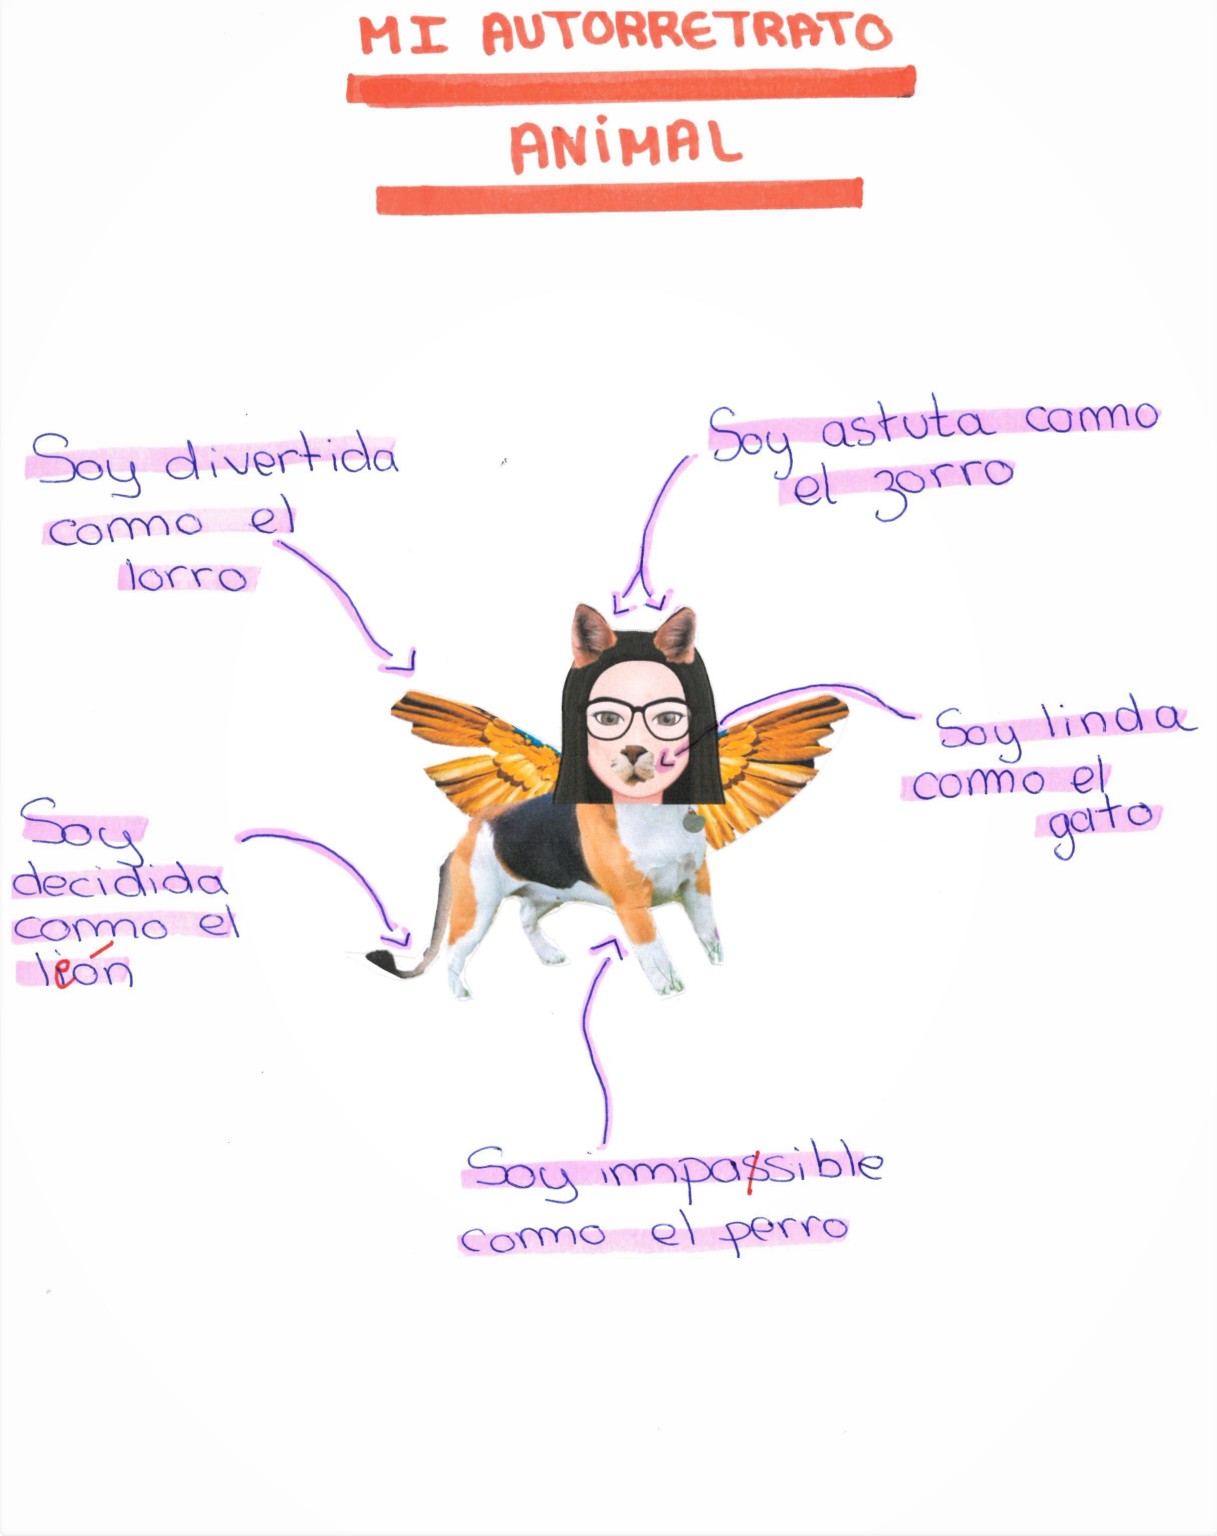 MI AUTORRETRATO
ANIMAL
Soy divertida
como el
lorro
Soy astuta como
el zorro
Soy linda
como el
gato
Soy
decidida
como el
león
Soy impassible
como el perro